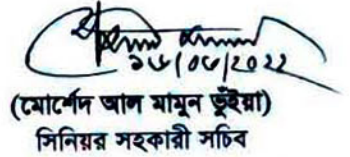 ১৬/০৬/2022
(মোর্শেদ আল মামুন ভূঁইয়া)
সিনিয়র সহকারী সচিব